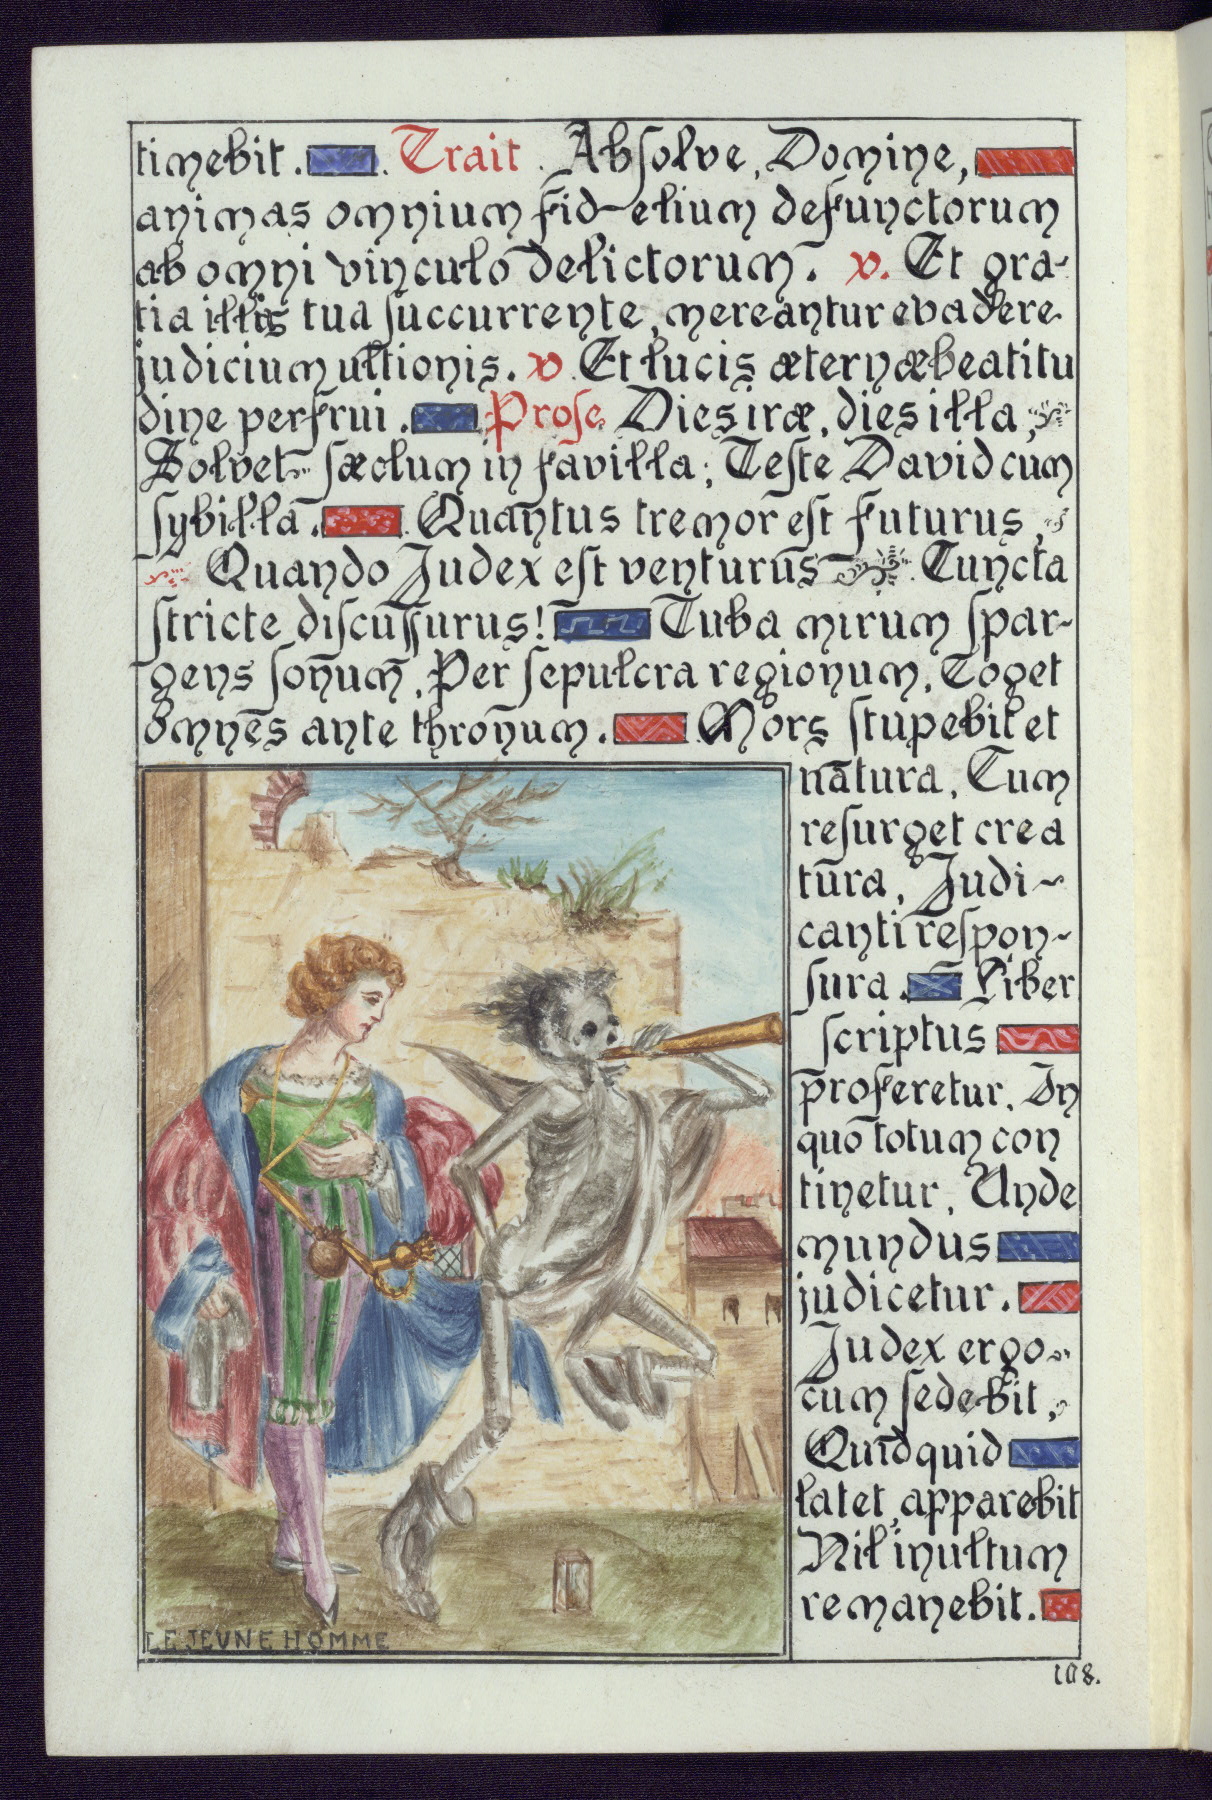 timebit. Trait. Absolve, Domine,
animas omnium fidelium defunctorum
ab omni vinculo delictorum. v. Et gra-
tia illis tua succurrente, mereantur evadere
judicium ultionis. v. Et lucis æternæ beatitu
dine perfrui. Prose Dies iræ, dies illa,
Solvet sæclum in favilla; Teste David cum
sybilla. Quantus tremor est futurus,
Quando Judex est venturus Cuncta
stricte discussurus! Tuba mirum spar-
gens sonum, Per sepulcra regionum, Coget
omnes ante thronum. Mors stupebit et
natura, Cum
resurget crea
tura, Judi-
canti respon-
sura. Liber
scriptus
proferetur, In
quo totum con
tinetur, Unde
mundus
judicetur.
Judex ergo
cum sedebit,
Quidquid
latet, apparebit
Nil inultum
remanebit.
LE JEVNE HOMME
108.